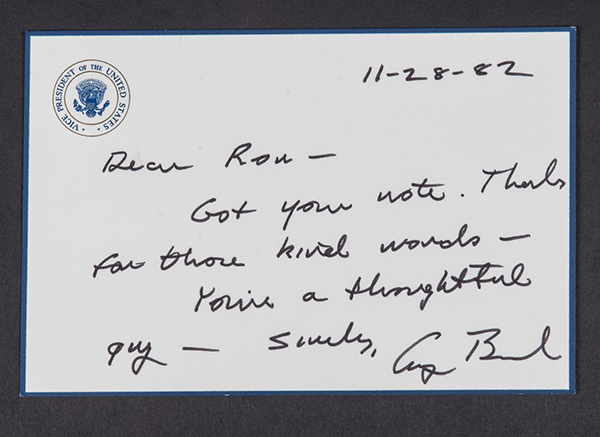 VICE PRESIDENT OF THE UNITED STATES
11-28-82
Dear Ron —
Got your note. Thanks
for those kind words —
You're a thoughtful
guy — Sincerely, George Bush